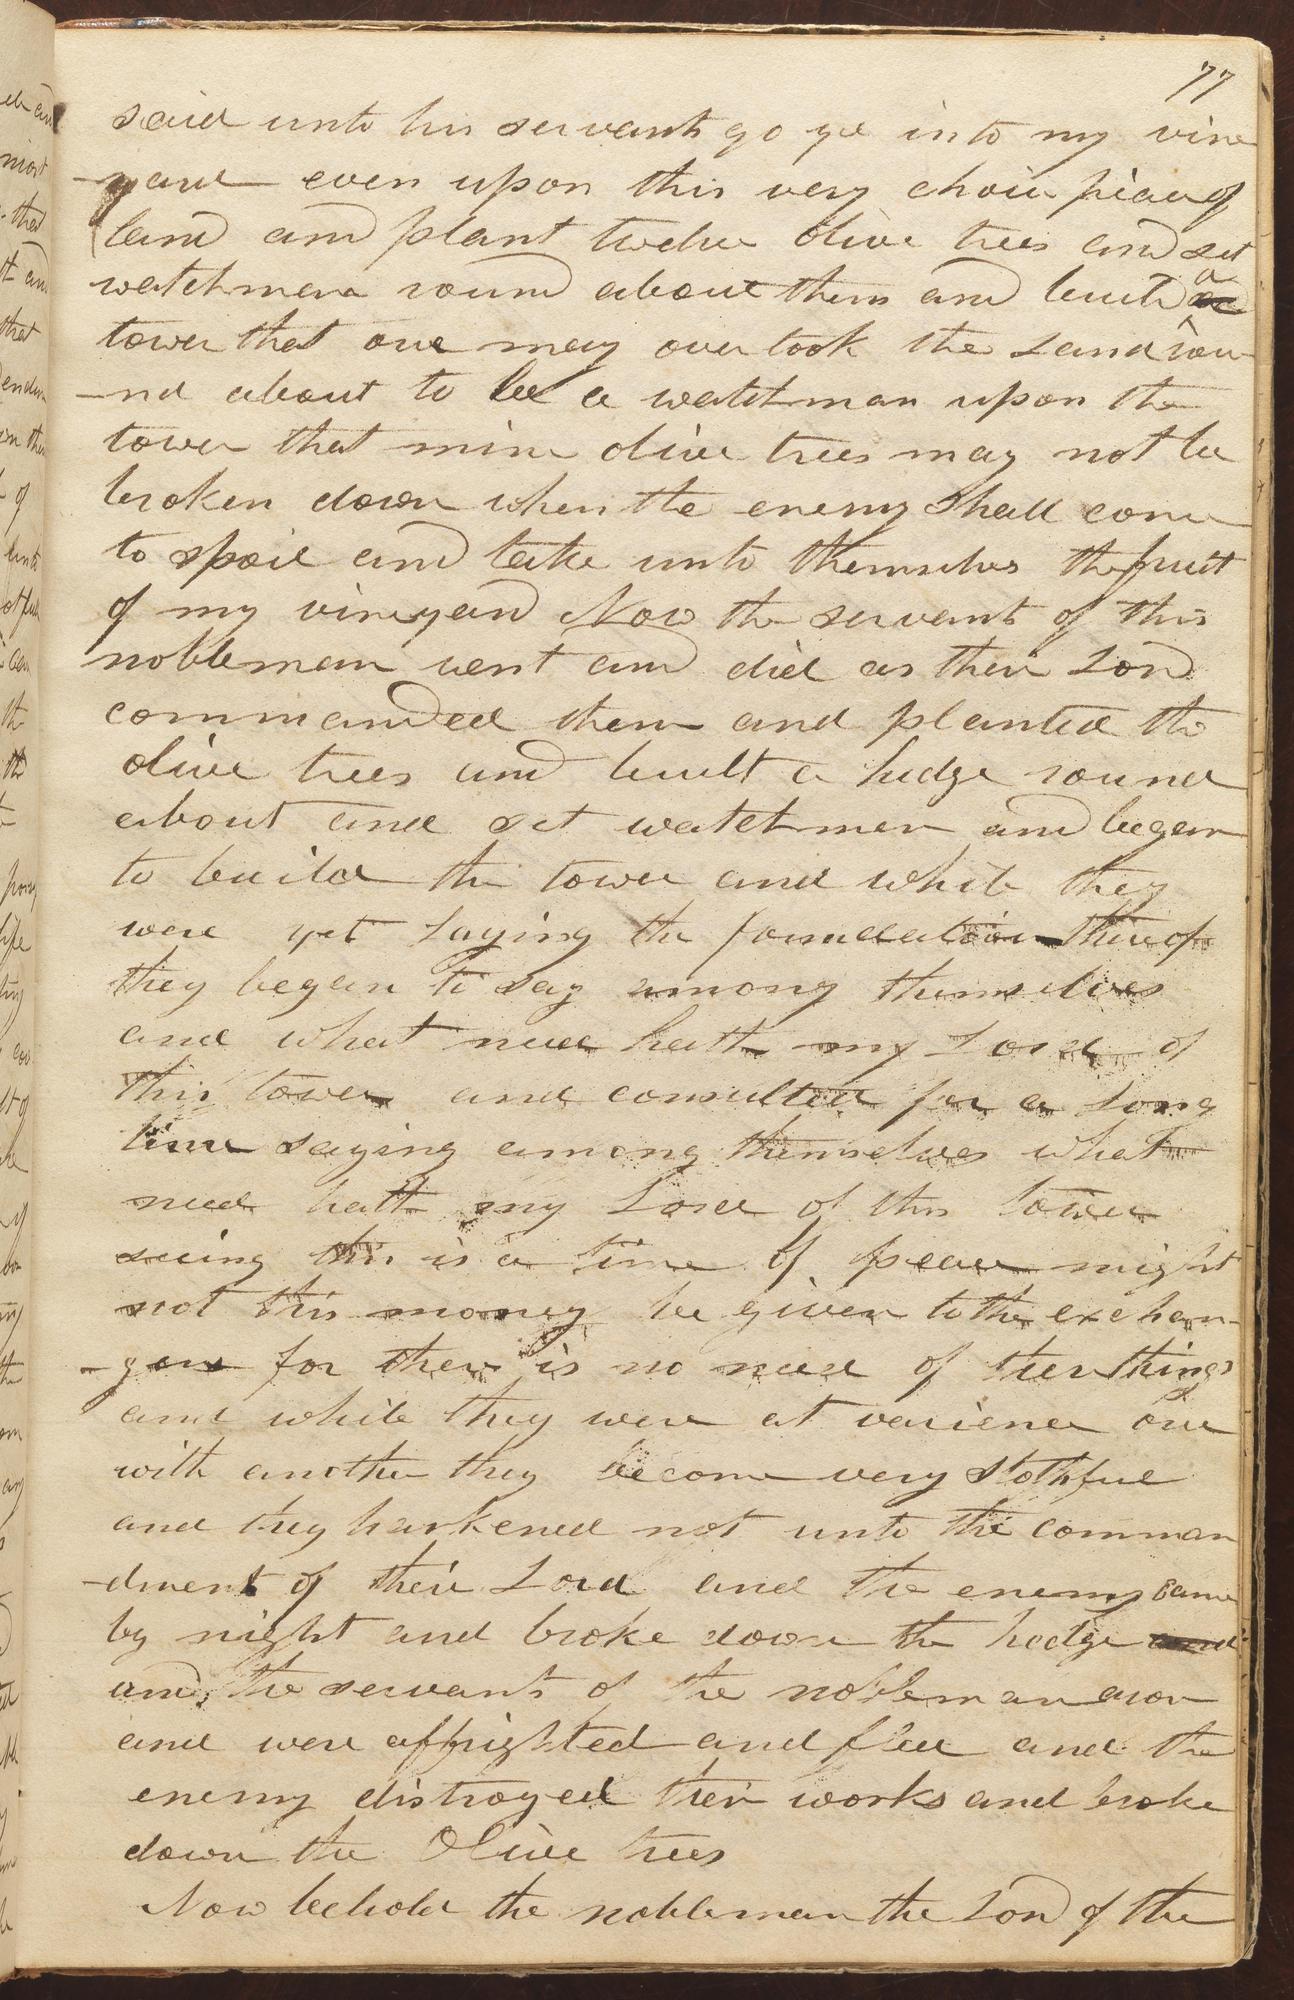 77
said unto his servants go ye into my vine
-yard even upon this very choice piece of
land and plant twelve olive trees and set
watchmen round about them and build a
tower that one may over look the Land rou-
-nd about to be a watchman upon the
tower that mine olive trees may not be
broken down when the enemy Shall come
to spoil and take unto themselves the fruit
of my vineyard Now the servants of this
nobleman went and did as their Lord
commanded them and planted the
olive trees and built a hedge round
about and set watchmen and began
to build the tower and while they
were yet laying the foundation thereof
they began to say among themselves
and what need hath my Lord of
this tower and consulted for a long
time saying among themselves what
need hath my Lord of this tower
seeing this is a time of peace might
not this money be given to the exchan-
-gers for there is no need of these things
and while they were at varience one
with another they become very Slothful
and they harkened not unto the comman
-dment of their Lord and the enemy came
by night and broke down the hedge and
and the servants of the nobleman arose
and were affrighted and fled and the
enemy distroyed their works and broke
down the Olive trees
Now behold the nobleman the Lord of the